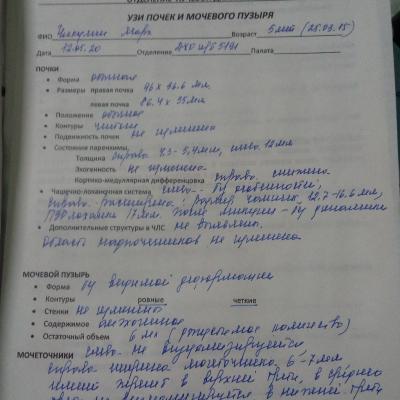 УЗИ ПОЧЕК И МОЧЕВОГО ПУЗЫРЯ
ФИО Возраст 5 лет (25.03.15)
Дата 12.05.20 Отделение Палата
ПОЧКИ
• Форма обычная
• Размеры правая почка 96 х 36.6 мм
левая почка 86.4 х 35 мм
• Положение обычное
• Контуры четкие
• Подвижность почек не изменена
• Состояние паренхимы:
Толщина справа 4.3-5,4 мм, слева 12 мм
Эхогенность не изменена
Кортико-медуллярная дифференцировка справа снижена
• Чашечно-лоханочная система слева - б/особенностей,
справа - расширена: размер чашечек 12.7-16.6 мм,
ПЗР лоханки 17 мм. После микции - б/динамики
• Дополнительные структуры в ЧЛС не выявлены.
Область надпочечников не изменена
МОЧЕВОЙ ПУЗЫРЬ
• Форма б/видимой деформации
• Контуры ровные четкие
• Стенки не изменены
• Содержимое
• Остаточный объем 6 мл (допустимое количество)
МОЧЕТОЧНИКИ слева - не визуализируется
справа ширина мочеточника 6-7 мм
в верхней трети, в средней
не визуализируется, в нижней трети